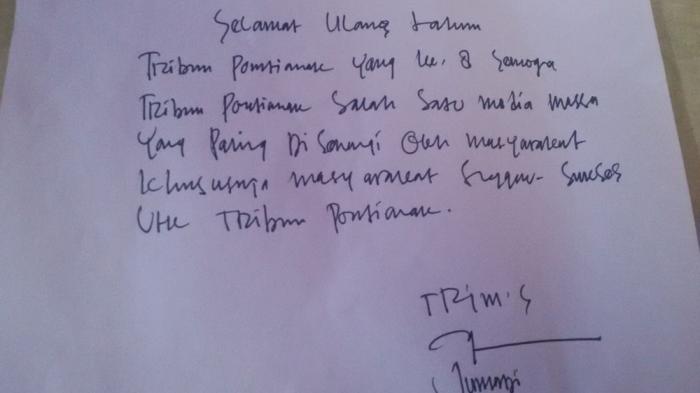 Selamat Ulang tahun
Tribun Pontianak yang ke. 8 Semoga
Tribun Pontianak Salah Satu media massa
yang Paling Di Senangi Oleh masyarakat
Khususnya masyarakat Sukses
Utk Tribun Pontianak.
TRIM.S